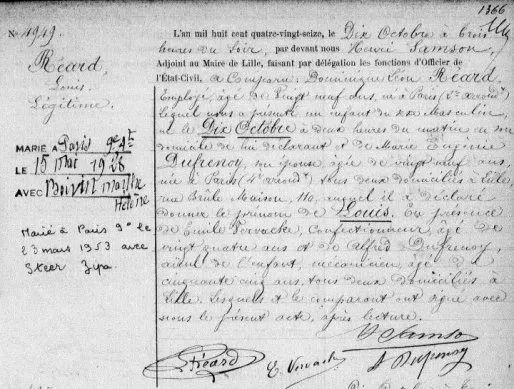 1366
No 4949.
Réard,
Louis.
Légitime.
MARIÉ A Paris 9e At
LE 15 mai 1928
AVEC Boivin Marthe
Hélène
Marié à Paris 9e le
23 mars 1953 avec
Steer Zipa
L'an mil huit cent quatre-vingt-seize, le Dix Octobre à trois
heures du soir, par devant nous Henri Samson,
Adjoint au Maire de Lille, faisant par délégation les fonctions d'Officier de
l'État-Civil, a comparu Dominique Léon Réard
Employé, âgé de vingt neuf ans, né à Paris
lequel nous a présenté un enfant du sexe Masculin
né le Dix Octobre à deux heures du matin en son
domicile de lui déclarant et de Marie Eugénie
Dufrenoy, son épouse, âgée de vingt neuf ans,
née à Paris (4e arrondt) tous deux domiciliés à Lille,
rue Brûle Maison, 110, auquel il a déclaré
donner le prénom de Louis. En présence
de Emile Vervacke, Confectionneur, âgé de
vingt quatre ans et de Alfred Dufrenoy,
aïeul de l'enfant, mécanicien, âgé de
cinquante cinq ans, tous deux domiciliés à
Lille. Lesquels et le comparant ont signé avec
nous le présent acte, après lecture.
H Samson
L. Réard E. Vervacke A Dufrenoy